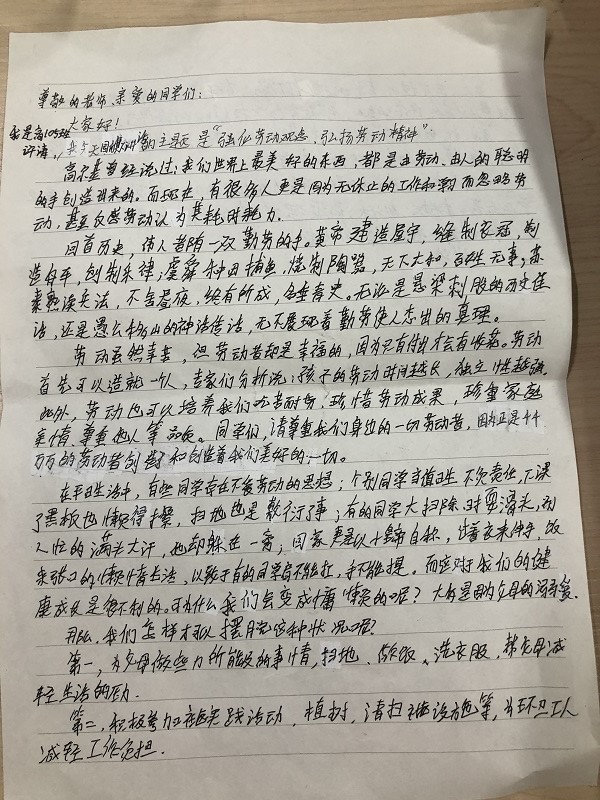 尊敬的老师、亲爱的同学们：
大家好！
我是高105班
许涛，今天国旗下讲话的主题是“强化劳动观念，弘扬劳动精神”
高尔基曾经说过：我们世界上最美好的东西，都是由劳动、由人的聪明
的手创造出来的。而现在，有很多人更是因为无休止的工作和而忽略劳
动，甚至反感劳动认为其耗时耗力。
回首历史，伟人者随一双勤劳的手。黄帝建造屋宇，缝制衣冠，制
造舟车，创制乐律；虞舜种田捕鱼，烧制陶器，天下大和，百姓无事；苏
秦熟读兵法，不舍昼夜，终有所成，名垂青史。无论是悬梁刺股的历史佳
话，还是愚公移山的神话传话，无不展现着勤劳使人杰出的真理。
劳动虽然辛苦，但劳动者却是幸福的，因为只有付出才会有收获。劳动
首先可以造就一个人，专家们分析说：孩子的劳动时间越长，独立性越强
此外，劳动也可以培养我们吃苦耐劳、珍惜劳动成果，珍重家庭
亲情、尊重他人等品质。同学们，请尊重我们身边的一切劳动者，因为正是千千
万万的劳动者创造了和创造着我们美好的一切。
在平日生活中，有些同学存在不爱劳动的思想；个别同学当值日生不负责任，下课
了黑板也懒得擦，扫地也是敷衍了事；有的同学大扫除时耍滑头，别
人忙的满头大汗，他却躲在一旁，回家更是以小自称，过着衣来伸手，饭
来张口的懒惰生活，以致于有的同学肩不能扛，手不能提。而这对于我们的健
康成长是很不利的。可为什么我们会变成懒惰的呢？大都是因为父母的溺爱。
那么，我们怎样才可以摆脱这种状况呢？
第一，为父母做些力所能及的事情，扫地、做饭、洗衣服，替父母减
轻生活的压力。
第二，积极参加社区实践活动，植树，清扫设施等，为环卫工人
减轻工作负担。